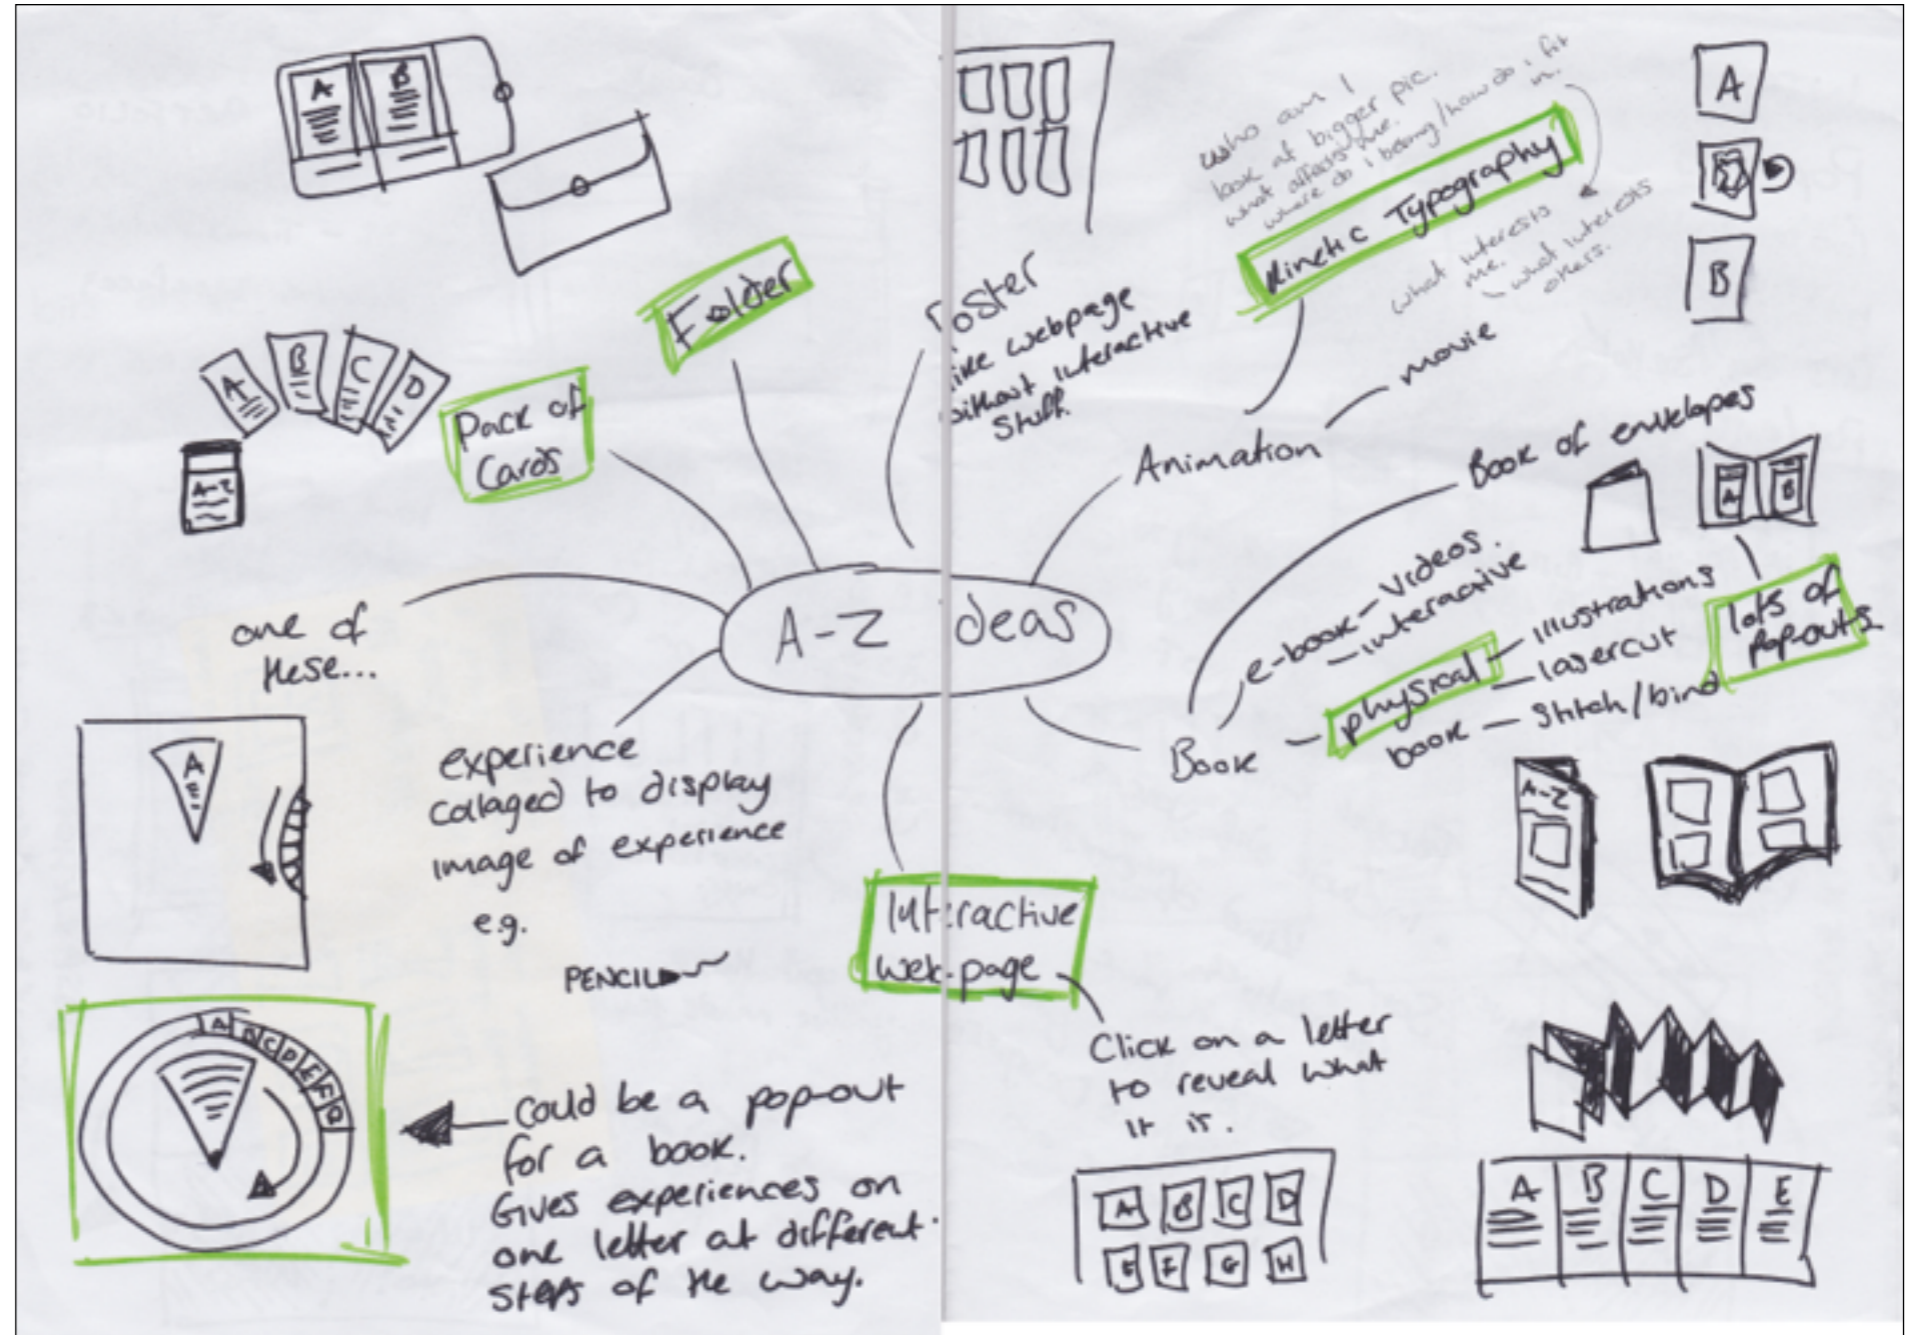 A
B
Folder
A
B
C
D
A-Z
Pack of
Cards
oster
ike webpage
ithout interactive
stuff.
who am I
look at bigger pic.
what affects me.
where do i belong/how do i fit
in.
Kinetic Typography
what interests
me.
what interests
others.
A
B
movie
Animation
Book of envelopes
A
B
lots of
pop-outs
A-Z
deas
e-book - videos.
- interactive
Book - physical - illustrations
- lasercut
book - stitch/bind
A-Z
one of
these...
A
experience
collaged to display
image of experience
e.g.
PENCIL
Interactive
web page
Click on a letter
to reveal what
it is.
A B C D
E F G H
A B C D E F G
Could be a pop-out
for a book.
Gives experiences on
one letter at different
steps of the way.
A B C D E